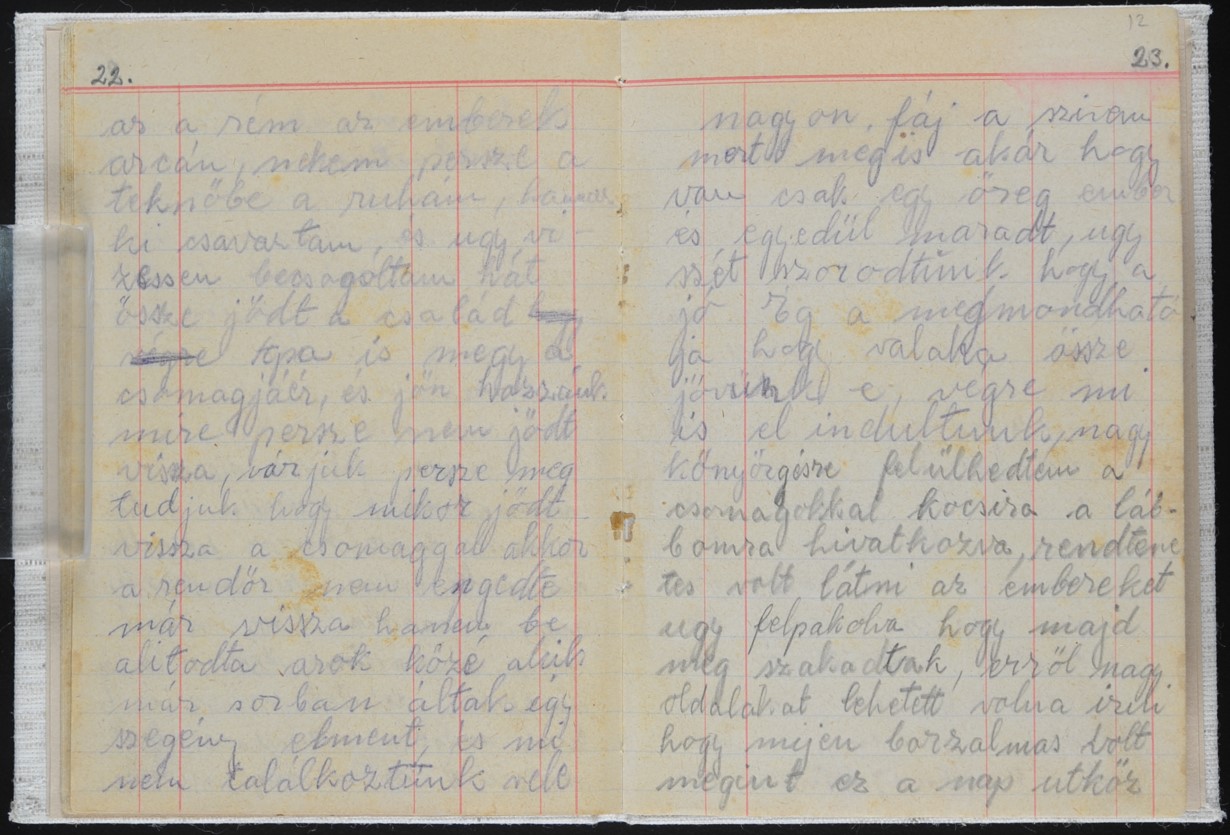 22.
az a rém az emberek
arcán, nekem persze a
teknőbe a ruhám, hamar
ki csavartam, és ugy vi-
zessen becsogoltam hát
össze jödt a család hogy
végre Apa is megy a
csomagjáér, és jön hozzánk
mire persze nem jödt
vissza, várjuk persze meg
tudjuk hogy mikor jödt
vissza a csomaggal akkor
a rendőr nem engedte
már vissza hanem be
alitodta azok közé akik
már sorban áltak így
szegény elment, és mi
nem találkoztünk vele
12
23.
nagyon, fáj a szivem
mert mégis akár hogy
van csak egy öreg ember
és egyedül maradt, ugy
szét szorodtunk hogy a
jó Ég a megmondható
ja hogy valaha össze
jövünk e, végre mi
is el indultunk, nagy
könyörgésre felülhedtem a
csomagokkal kocsira a láb-
bomra hivatkozva, rendtene
tes volt látni az embereket
ugy felpakolva hogy majd
meg szakadtak, erről nagy
oldalakat lehetett volna irili
hogy mijen borzalmas volt
megint ez a nap utköz